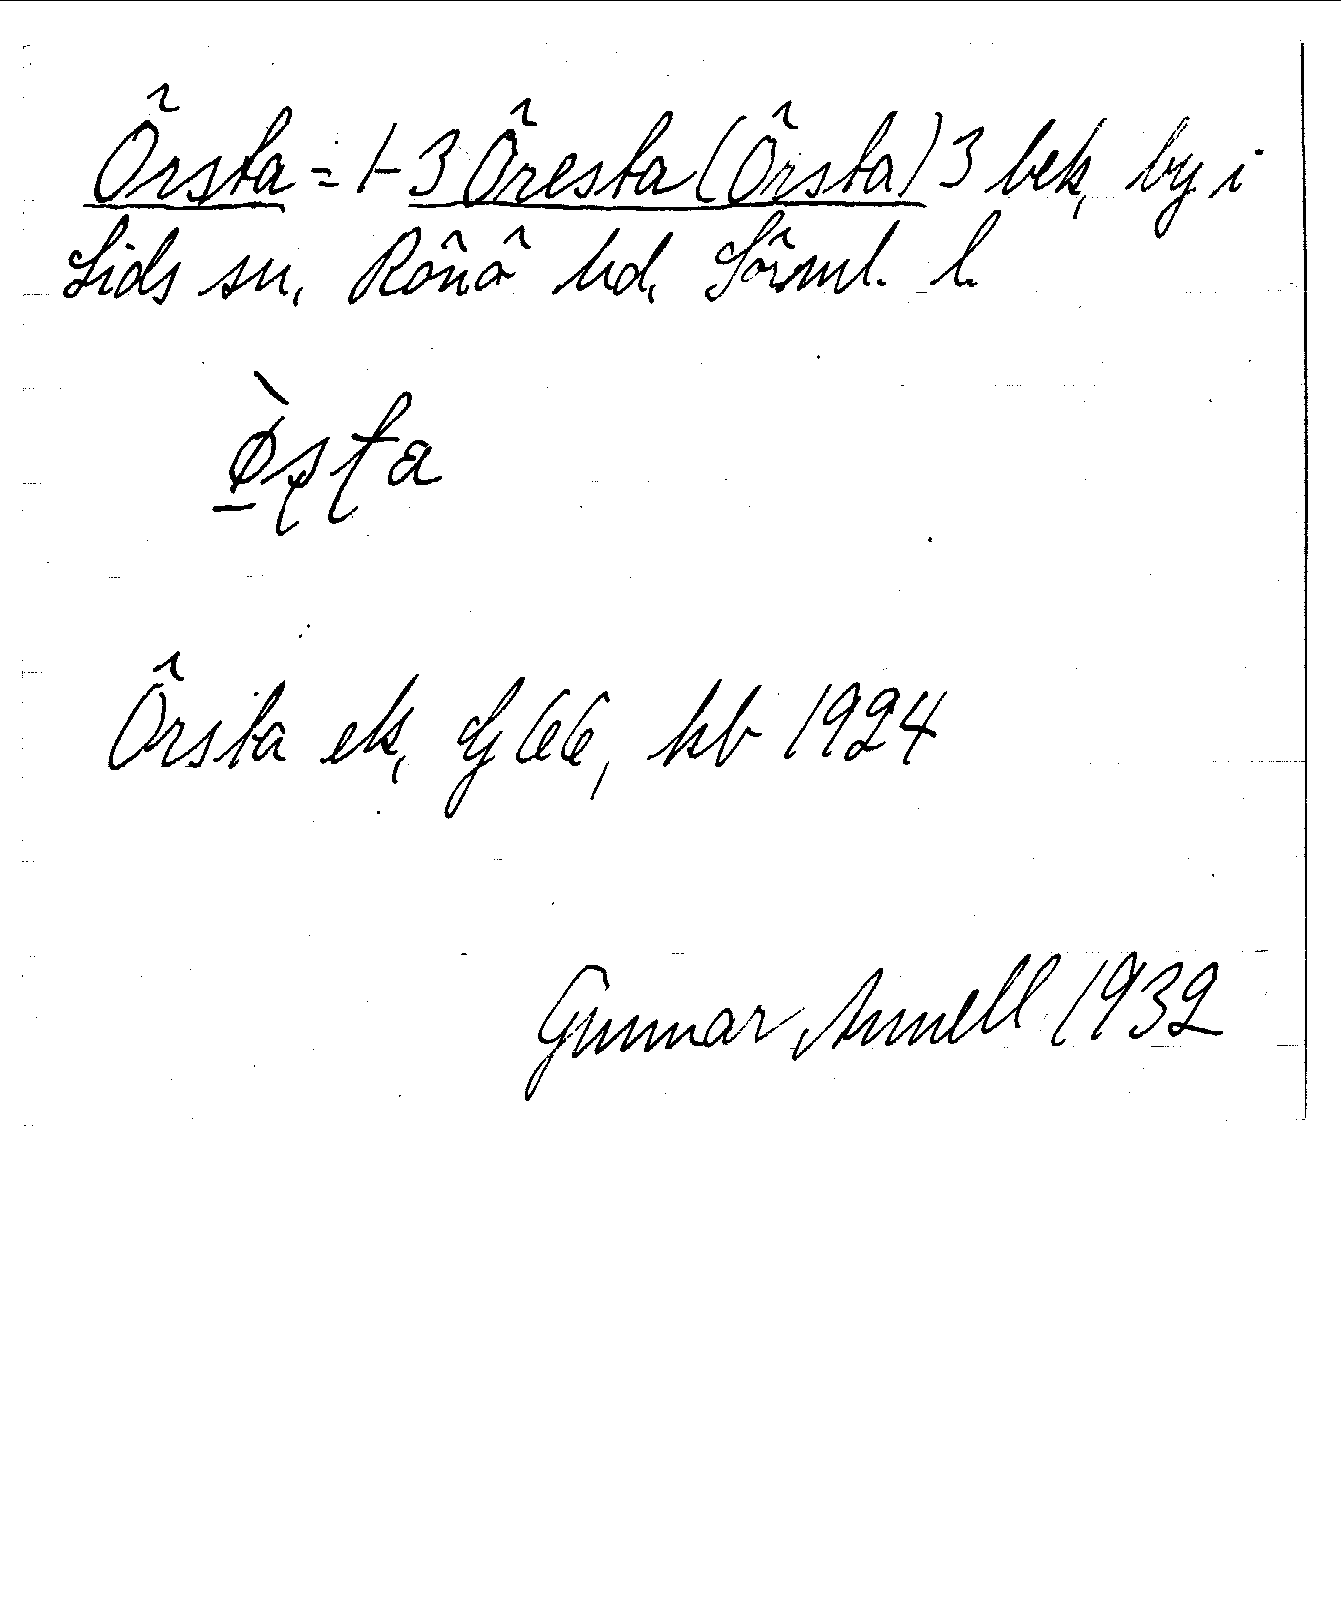 Örsta = 1-3 Öresta (Örsta) 3 bek, by i
Lids sn, Rönö hd, Sörml. l.
Örsta ek, Gj 66, kb 1924
Gunnar Annell 1932